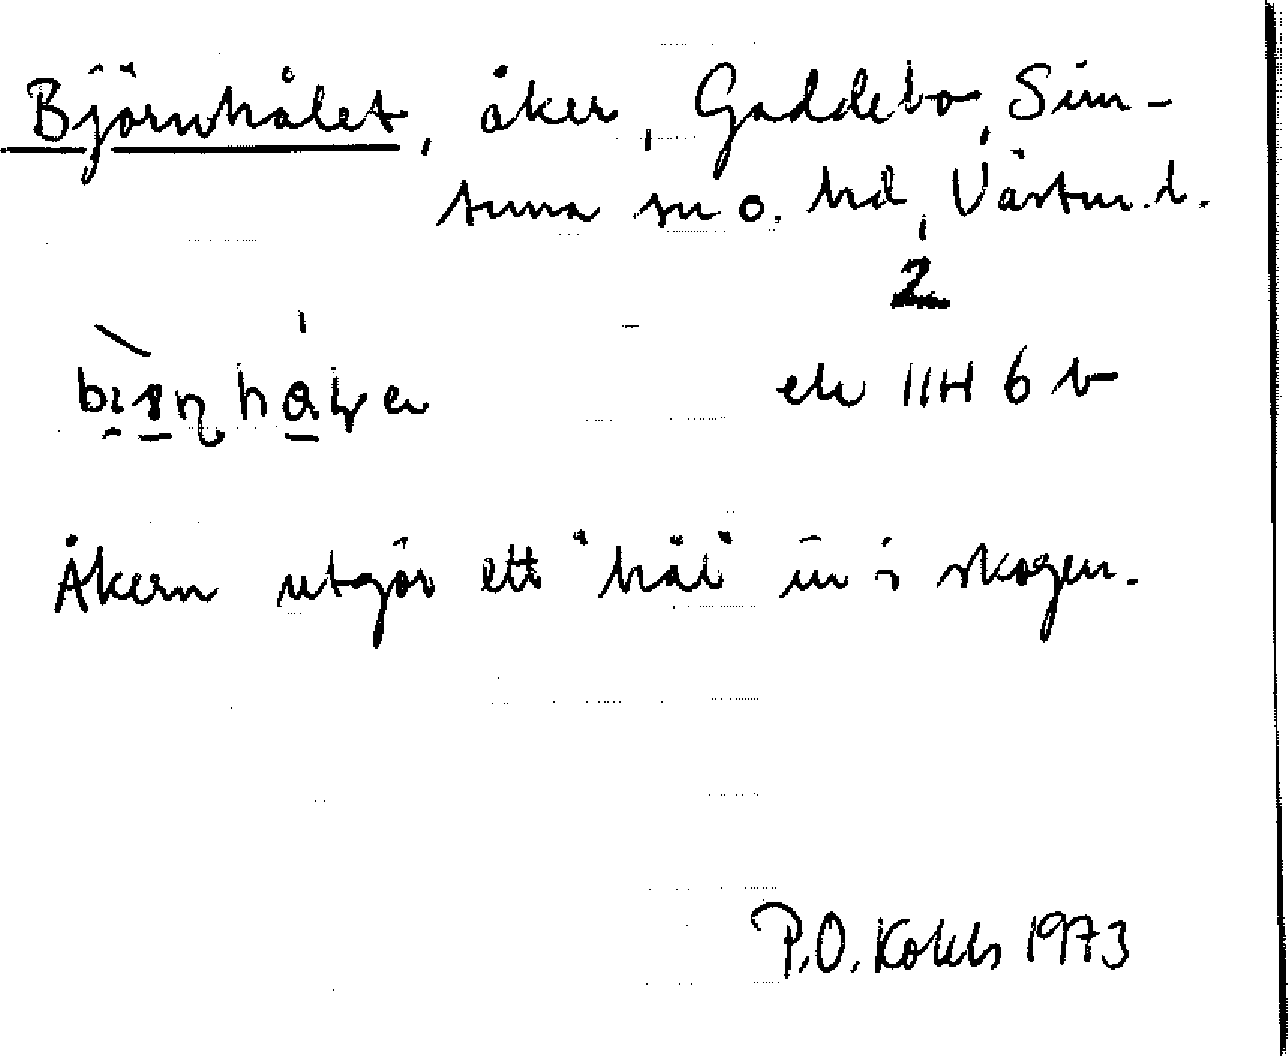 Björnhålet, åker, Gaddebo, Sim-
tuna sn o. hd, Västm. l.
2
ek 11H 6 b
Åkern utgör ett "hål" in i skogen.
P.O. 1973